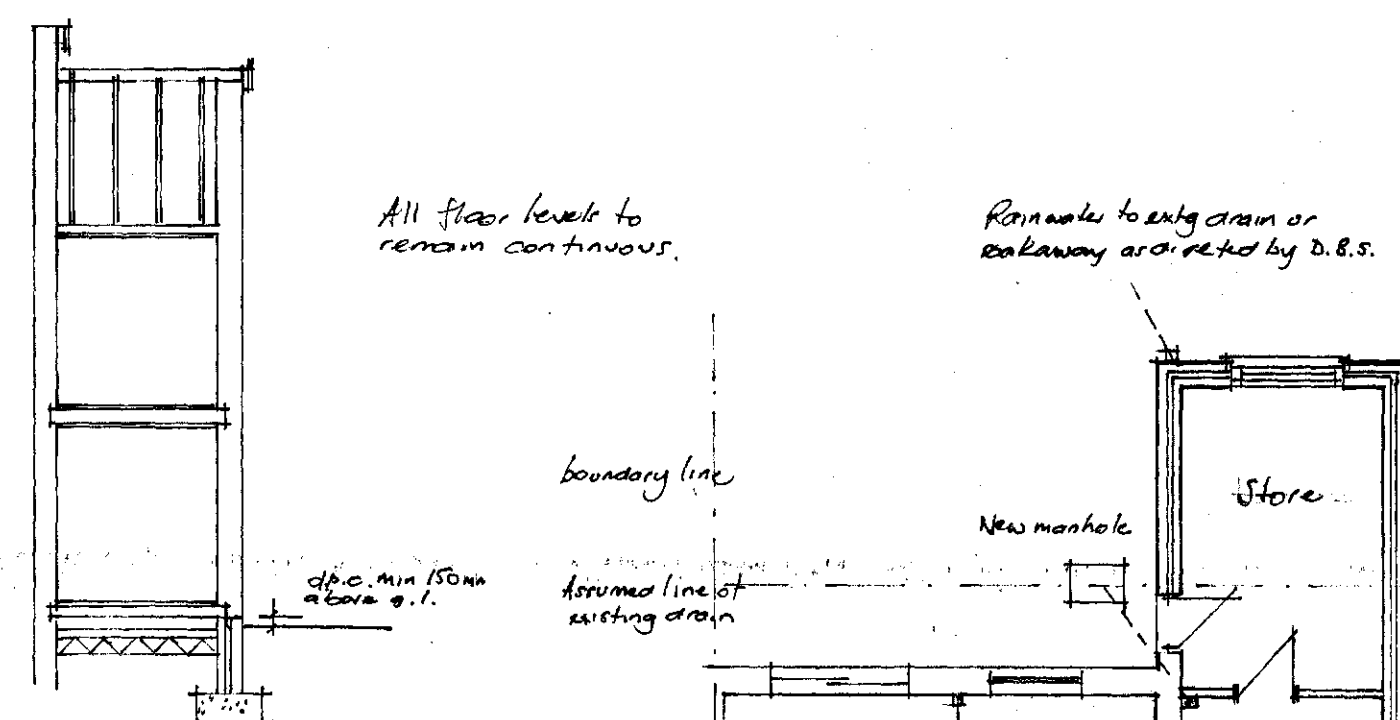 All floor levels to
remain continuous.
Rainwater to extg drain or
soakaway as directed by D.B.S.
boundary line
Store
New manhole
d.p.c. min 150mm
above g.l.
Assumed line of
existing drain